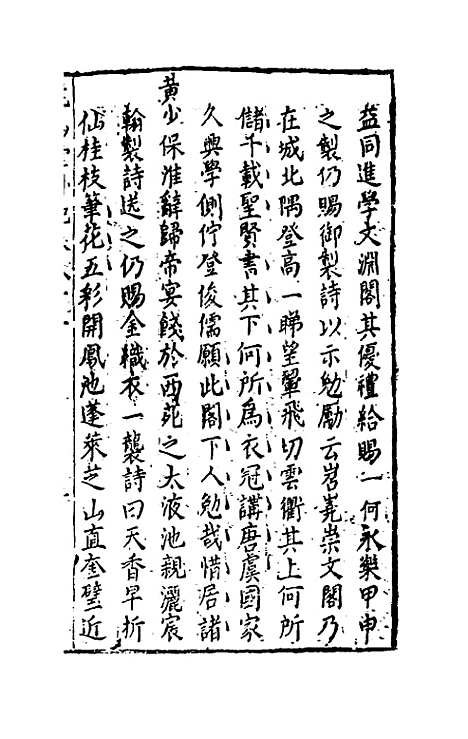 益同進學文淵閣其優禮給賜一何永樂甲申
之製仍賜御製詩以示勉勵云岧嶤崇文閣乃
在城北隅登高一睇望翬飛切雲衢其上何所
儲千載聖賢書其下何所為衣冠講唐虞國家
久興學側佇登俊儒願此閣下人勉哉惜居諸
黃少保淮辭歸帝宴餞於西苑之太液池親灑宸
翰製詩送之仍賜金織衣一襲詩曰天香早折
仙桂枝筆花五彩開鳳池蓬萊芝山直奎璧近